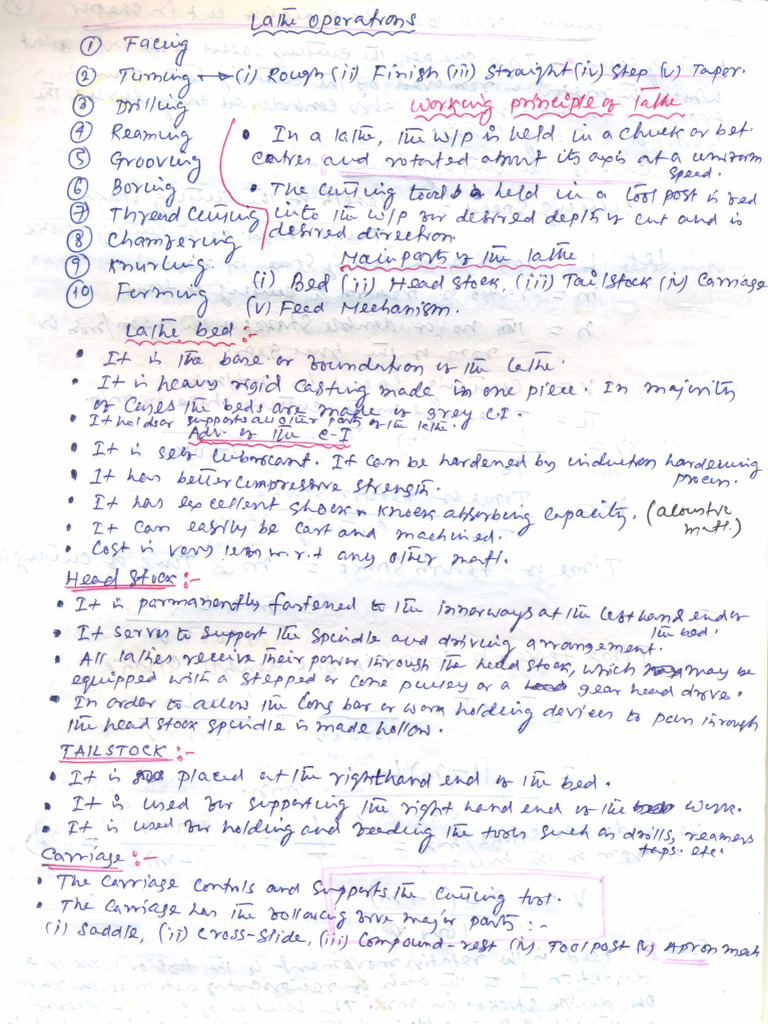 Lathe operations
① Facing
② Turning → (i) Rough (ii) Finish (iii) Straight (iv) Step (v) Taper.
③ Drilling
Working principle of lathe
④ Reaming
• In a lathe, the w/p is held in a chuck or bet.
⑤ Grooving
centres and rotated about its axis at a uniform speed.
⑥ Boring
• The cutting tool is held in a tool post is fed
⑦ Thread Cutting
into the w/p for desired depth of cut and is
⑧ Chamfering
desired direction.
Main parts of the lathe
⑨ Knurling.
(i) Bed (ii) Head stock, (iii) Tailstock (iv) Carriage
⑩ Forming
(v) Feed Mechanism.
Lathe bed :-
• It is the base or foundation of the lathe.
• It is heavy rigid casting made in one piece. In majority
of cases the beds are made of grey C.I.
• It holds or supports all other parts of the lathe.
Adv. of the C-I
• It is self lubricant. It can be hardened by induction hardening process.
• It has better compressive strength.
• It has excellent shock n knock absorbing capacity. (acoustic matl.)
• It can easily be cast and machined.
• Cost is very less w.r.t any other matl.
Head Stock :-
• It is parmanently fastened to the innerways at the left hand end of the bed.
• It serves to support the spindle and driving arrangement.
• All lathes receive their power through the head stock, which may be
equipped with a stepped or cone pulley or a gear head drive.
• In order to allow the long bar or work holding devices to pass through
the head stock spindle is made hollow.
TAILSTOCK :-
• It is placed at the right hand end of the bed.
• It is used for supporting the right hand end of the work.
• It is used for holding and feeding the tools such as drills, reamers
taps. etc.
Carriage :-
• The carriage controls and supports the cutting tool.
• The carriage has the following five major parts :-
(i) Saddle, (ii) Cross-slide, (iii) Compound-rest (iv). Tool post (v) Apron mech